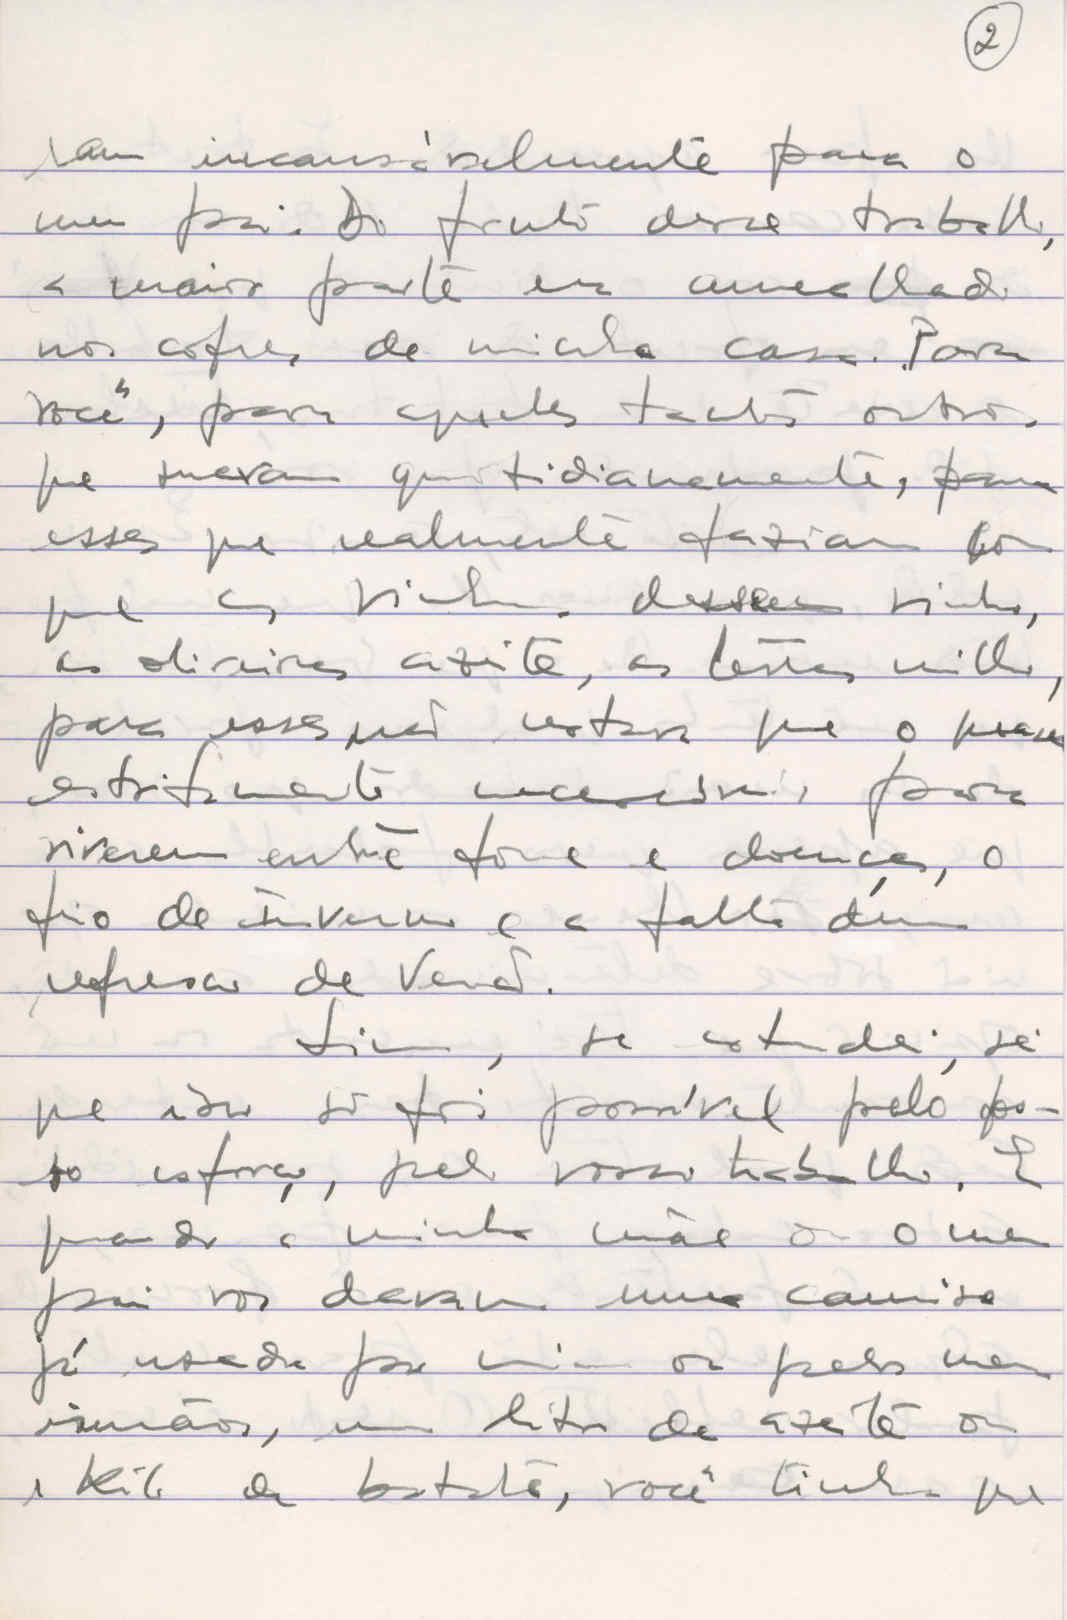 2
ram incansàvelmente para o
meu pai. Do fruto desse trabalho,
a maior parte era amealhado
nos cofres de minha casa. Para
você, para aqueles tantos outros
que suavam quotidianamente, para
esses que realmente faziam com
que as vinhas dessem vinho,
as oliveiras azeite, as terras milho,
para esses não restava que o quase
estritamente necessário para
viverem entre fome e doenças, o
frio de inverno e a falta dum
refresco de Verão.
Sim, se estudei, sei
que isso só foi possível pelo vos-
so esforço, pelo vosso trabalho. E
quando a minha mãe ou o meu
pai vos davam uma camisa
já usada por mim ou pelos meus
irmãos, um litro de azeite ou
1 kilo de batatas, você tinha que